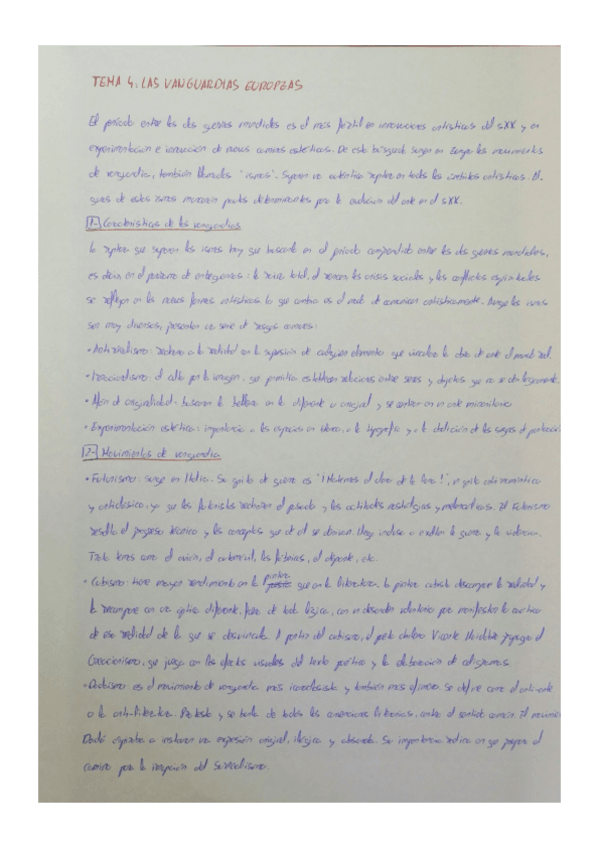 TEMA 4: LAS VANGUARDIAS EUROPEAS
El periodo entre las dos guerras mundiales es el más fértil en innovaciones artísticas del sXX y en
experimentación e innovación de nuevas corrientes estéticas. De esta búsqueda surgen en Europa los movimientos
de vanguardia, también llamados "ismos". Suponen una auténtica ruptura en todos los ámbitos artísticos. El
de estos ismos marcaron pautas determinantes para la evolución del arte en el sXX.
1- Características de las vanguardias
La ruptura que suponen los ismos hay que buscarla en el periodo comprendido entre las dos guerras mundiales,
es decir, en el periodo de entreguerras: la total, el las crisis sociales y los conflictos espirituales
se reflejan en las nuevas formas artísticas lo que cambia es el modo de comunicar artísticamente. Aunque los ismos
son muy diversos, presentan una serie de rasgos comunes:
• Antirrealismo: rechazo a la realidad en la supresión de cualquier elemento que vincular la obra de arte el mundo real.
• Irracionalismo: el culto por la imagen, que permitía establecer relaciones entre seres y objetos que no se dan lógicamente.
• Afán de originalidad: buscaron la belleza en lo diferente u original y se centraron en un arte minoritario
• Experimentación estética: importancia a los espacios en blanco, a la tipografía y a la abolición de los signos de puntuación
2- Movimientos de vanguardia
• Futurismo: surge en Italia. Su grito de guerra es "¡Matemos el claro de la luna!", un grito antirromántico
y anticlásico, ya que los futuristas rechazan el pasado y las actitudes nostálgicas y melancólicas. El Futurismo
el progreso técnico y los conceptos que de él se derivan, llega incluso a exaltar la guerra y la violencia.
Trata temas como el avión, el automóvil, las fábricas, el deporte, etc.
• Cubismo: tiene mayor rendimiento en la pintura que en la literatura. La pintura cubista descompone la realidad y
la recompone con una óptica diferente, fuera de toda lógica, con un desorden voluntario para manifestar lo caótico
de esa realidad de la que se desvincula. A partir del cubismo, el poeta chileno Vicente Huidobro propaga el
Creacionismo, que juega con los efectos visuales del texto poético y la elaboración de caligramas.
• Dadaísmo: es el movimiento de vanguardia más iconoclasta y también más efímero. Se define como el antiarte
o la anti-literatura. Protesta y se burla de todas las convenciones literarias, contra el sentido común. El movimien
Dadá aspiraba a instaurar una expresión original, ilógica y absurda. Su importancia radica en que prepara el
camino para la irrupción del Surrealismo.